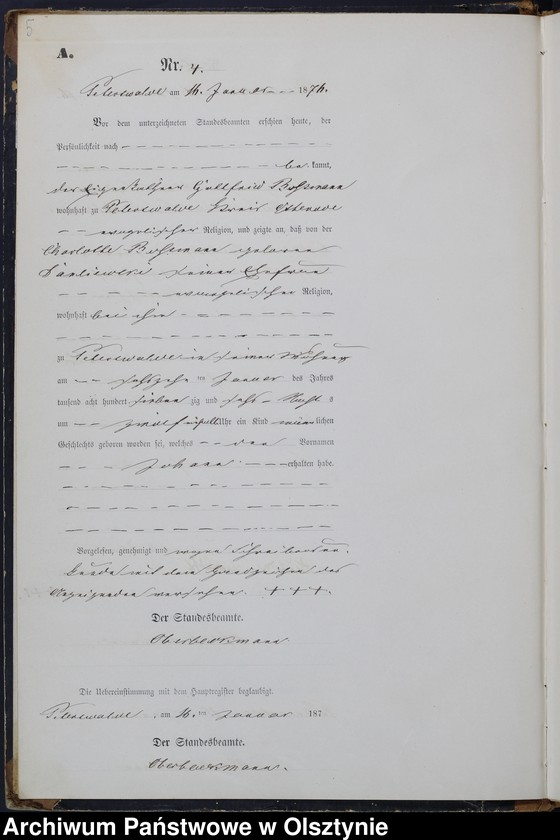 5
A.
Nr. 4.
Peterswalde am 16. Januar 1876.
Vor dem unterzeichneten Standesbeamten erschien heute, der
Persönlichkeit nach
be kannt,
der Eigenkäthner Gottfried
wohnhaft zu Peterswalde Kreis Osterode
evangelischer Religion, und zeigte an, daß von der
Charlotte geborene
seiner Ehefrau
evangelischer Religion,
wohnhaft bei ihm
zu Peterswalde in seiner Wohnung
am sechszehn ten Januar des Jahres
tausend acht hundert sieben zig und sechs Nachts
um zwölf Uhr ein Kind männlichen
Geschlechts geboren worden sei, welches den Vornamen
Johann erhalten habe.
Vorgelesen, genehmigt und wegen Schreibensun-
kunde mit dem Handzeichen des
Anzeigenden versehen. +++.
Der Standesbeamte.
Oberbeckmann
Die Uebereinstimmung mit dem Hauptregister beglaubigt.
Peterswalde, am 16. ten Januar 187
Der Standesbeamte.
Oberbeckmann.
Archiwum Państwowe w Olsztynie